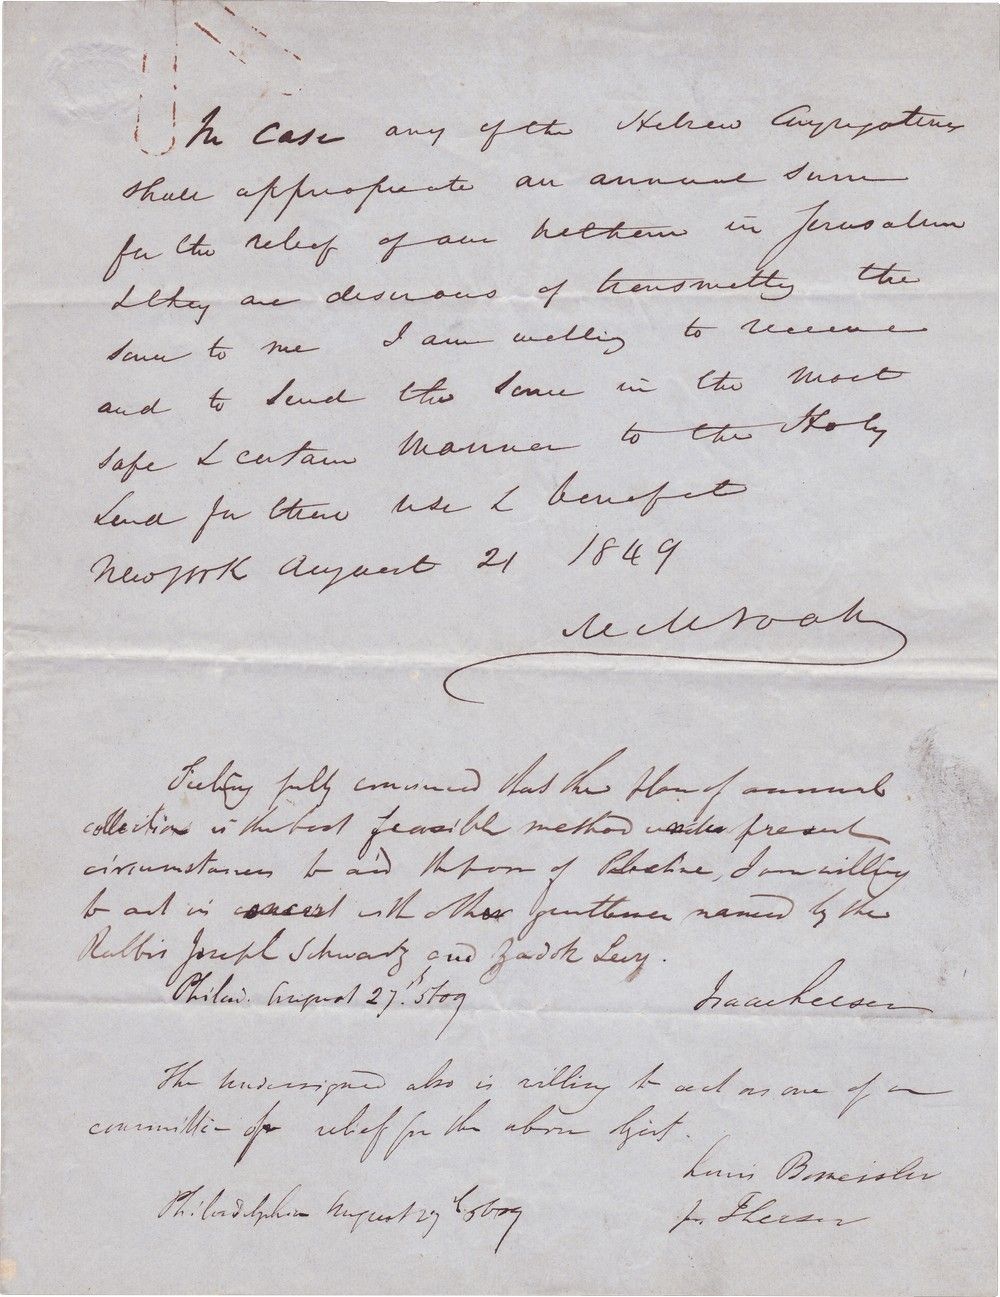 In Case any of the Hebrew Congregations
shall appropriate an annual sum
for the relief of our brethern in Jerusalem
& they are desirous of transmitting the
same to me I am willing to receive
and to send the same in the most
safe & certain manner to the Holy
Land for their use & benefit
New York August 21 1849
M M Noah
Feeling fully convinced that the plan of annual
collections is the best feasible method under present
circumstances to aid the poor of Palestine, I am willing
to act in concert with other gentlemen named by the
Rabbis Joseph Schwartz and Zadok Levy.
Philad. August 27th 5609
Isaac Leeser
The undersigned also is willing to act as one of a
committee for relief for the above object.
Louis Bomeisler
Philadelphia August 27th 5609
pr. I Leeser